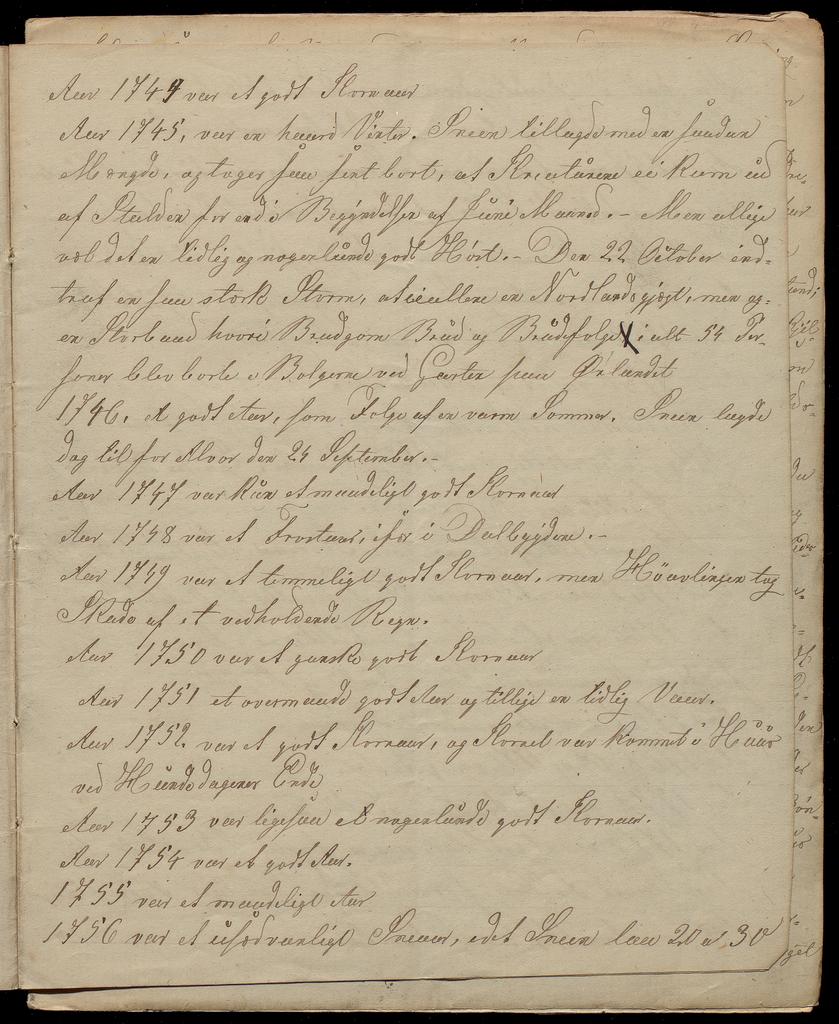 Aar 1744 var et godt Kornaar
Aar 1745, var en haard Vinter. Sneen tillagde med en saadan
Mængde, og toges saa sent bort, at Kreaturene ei kom ud
af Stalden for end i Begÿndelsen af Juni Maaned. – Men allige
vel det en tidlig og nogenlunde godt Høst. – Den 22 October ind-
traf en saa stærk Storm, at ei allene en Nordlandsjægt, men og-
en Storbaad hvori Brudgom Brud og Brudefolge i alt 54 Per-
soner blev borte i Bolgerne ved Garten paa Ørlandet
1746. et godt Aar, som Folge af en varm Sommer. Sneen lagde
dog til for Alvor den 24 September. –
Aar 1747 var kun et maadeligt godt Kornaar
Aar 1748 var et Frostaar, især i Dalbygderne. –
Aar 1749 var et temmeligt godt Kornaar, men Höavlingen tog
Skade af et vedholdende Regn.
Aar 1750 var et ganske godt Kornaar
Aar 1751 et overmaade godt Aar og tillige en tidlig Vaar.
Aar 1752. var et godt Kornaar, og Kornet var kommet i Huus
ved Hundsdagenes Ende
Aar 1753 var ligesaa et nogenlunde godt Kornaar.
Aar 1754 var et godt Aar.
1755 var et maadeligt Aar
1756 var et usædvanligt Sneaar, idet Sneen laa 20 a 30